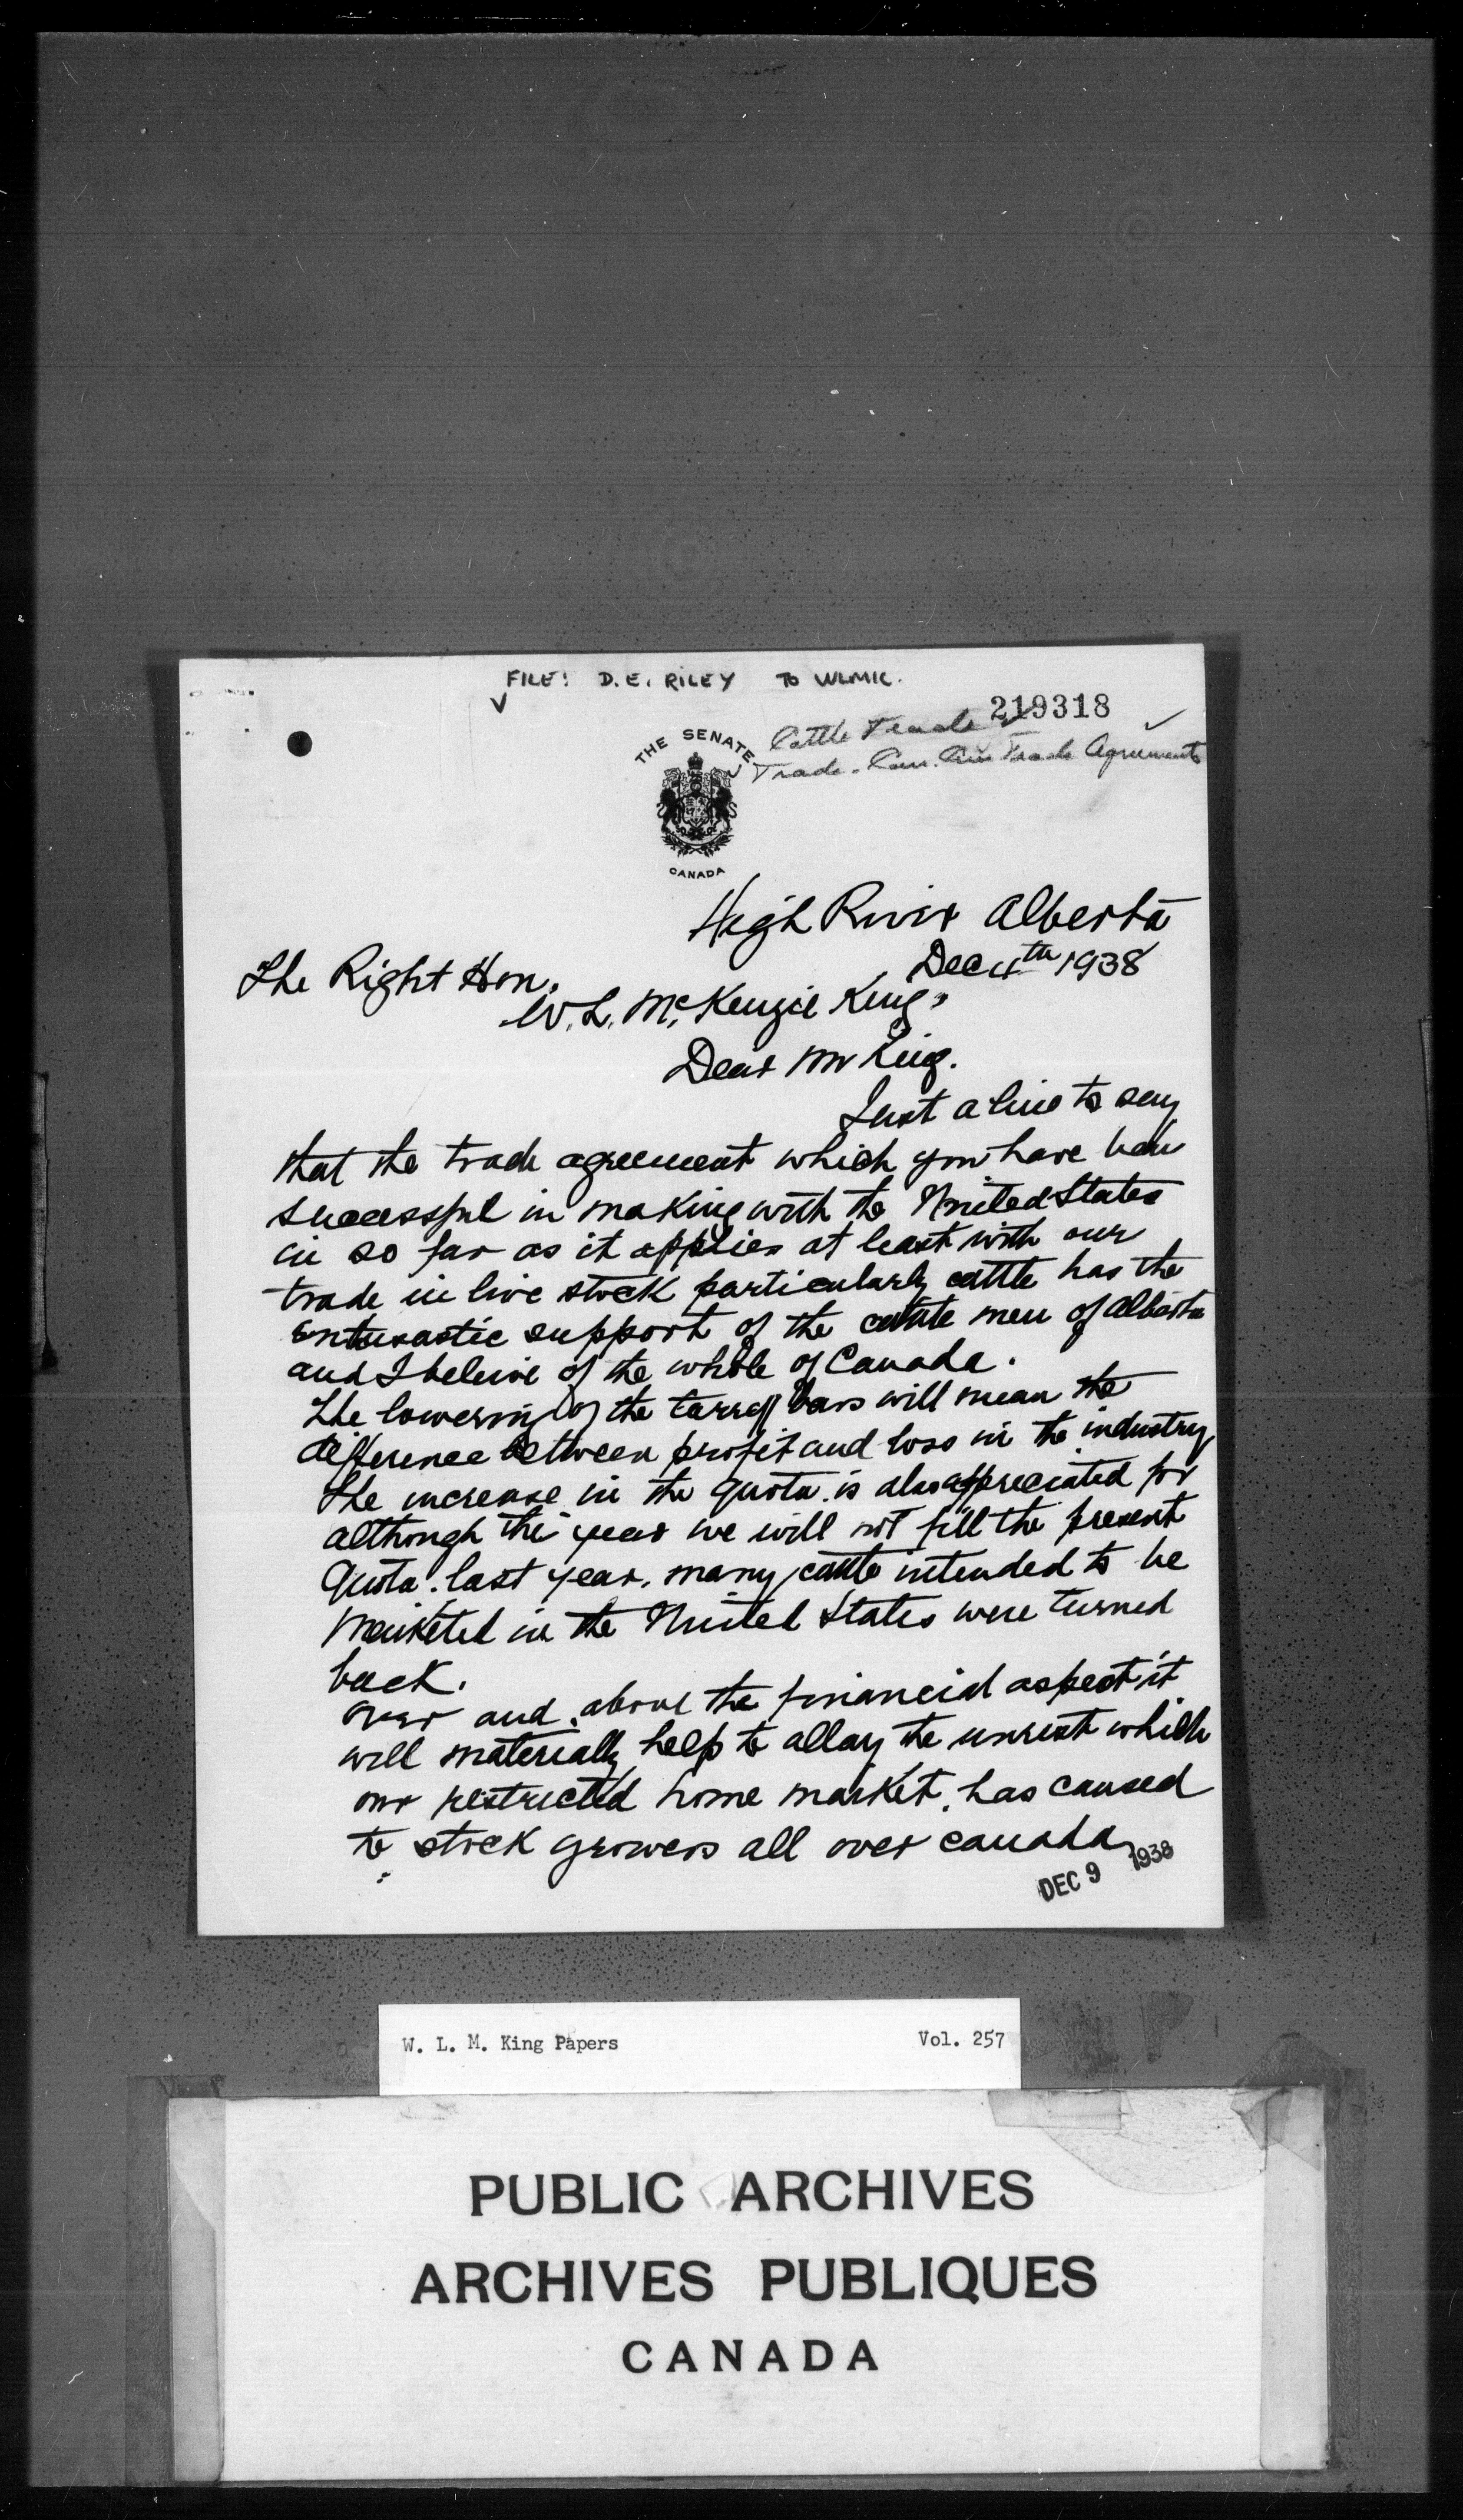 FILE! D.E. RILEY TO WLMK.
219318
Cattle Trade
Trade - Can. Am Trade Agreements
THE SENATE
CANADA
High River Alberta
Dec 4th 1938
The Right Hon.
W. L. McKenzie King.
Dear Mr King.
Just a line to say
that the trade agreement which you have been
successful in making with the United States
in so far as it applies at least with our
trade in live stock particularly cattle has the
entusastic support of the cattle men of Alberta
and I beleive of the whole of Canada.
The lowering of the tarrff bars will mean the
difference between profit and loss in the industry
The increase in the quota is also appreciated for
although this year we will not fill the present
Quota. last year, many cattle intended to be
Marketed in the United States were turned
back.
Over and above the financial aspect it
will materially help to allay the unrest which
our restricted home market, has caused
to stock growers all over canada
DEC 9 1938
W. L. M. King Papers Vol. 257
PUBLIC ARCHIVES
ARCHIVES PUBLIQUES
CANADA